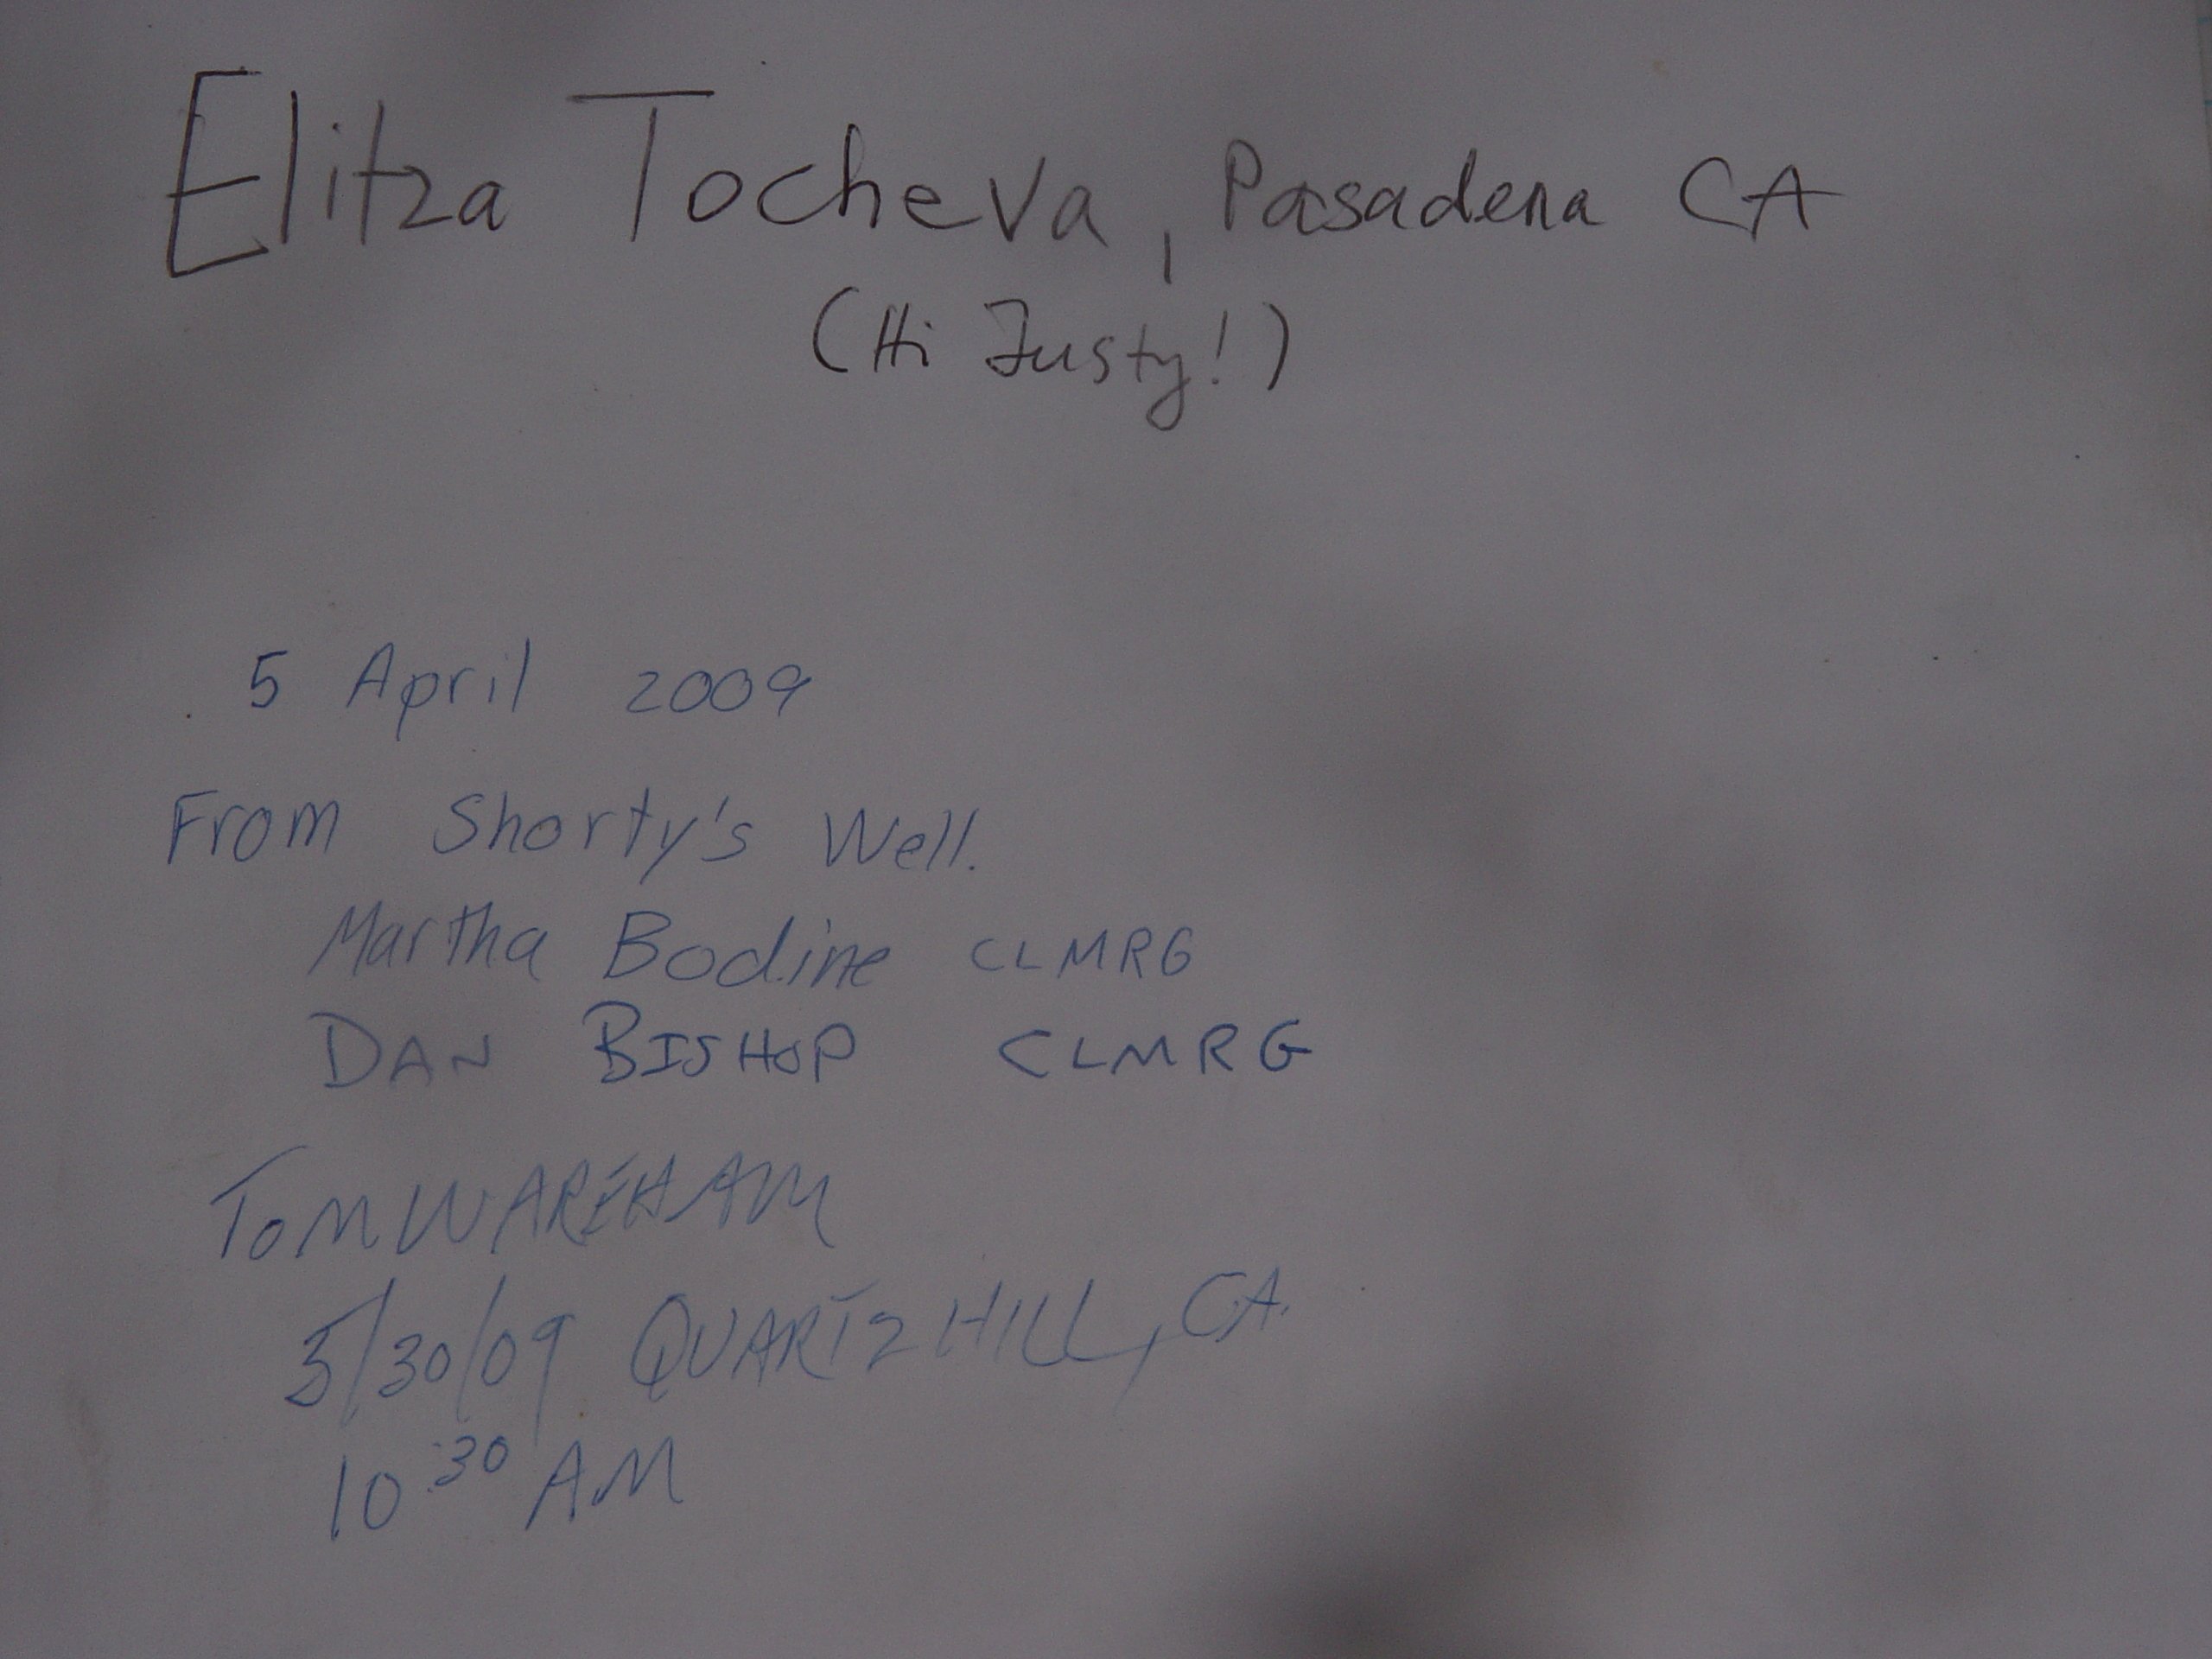 Elitza Tocheva, Pasadena CA
(Hi Justy!)
5 April 2009
From Shorty's Well.
Martha Bodine CLMRG
DAN BISHOP CLMRG
TOM WAREHAM
5/30/09 QUARTZ HILL, CA.
10:30 AM